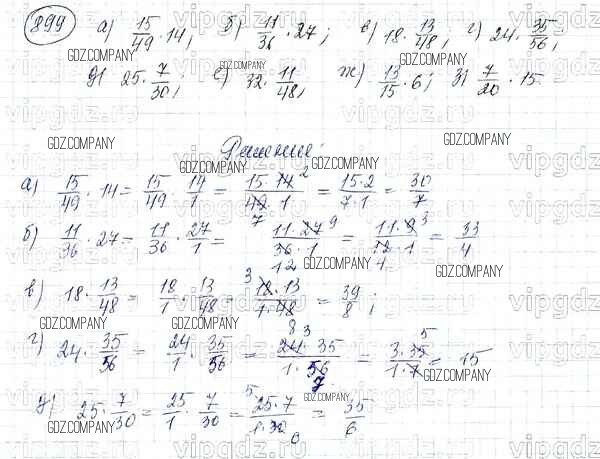 899 а) 15/49 · 14; б) 11/36 · 27; в) 18 · 13/48; г) 24 · 35/56;
д) 25 · 7/30; е) 32 · 11/48; ж) 13/15 · 6; з) 7/20 · 15.
Решение:
а) 15/49 · 14 = 15/49 · 14/1 = 15·14 2/49 7·1 = 15·2/7·1 = 30/7
б) 11/36 · 27 = 11/36 · 27/1 = 11·27 9/36 12·1 = 11·9 3/12 4·1 = 33/4
в) 18 · 13/48 = 18/1 · 13/48 = 3 18·13/1·48 8 = 39/8;
г) 24 · 35/56 = 24/1 · 35/56 = 3 24·35/1·56 7 = 3·35 5/1·7 = 15
д) 25 · 7/30 = 25/1 · 7/30 = 5 25·7/1·30 6 = 35/6
vipgdz.com
GDZ.COMPANY